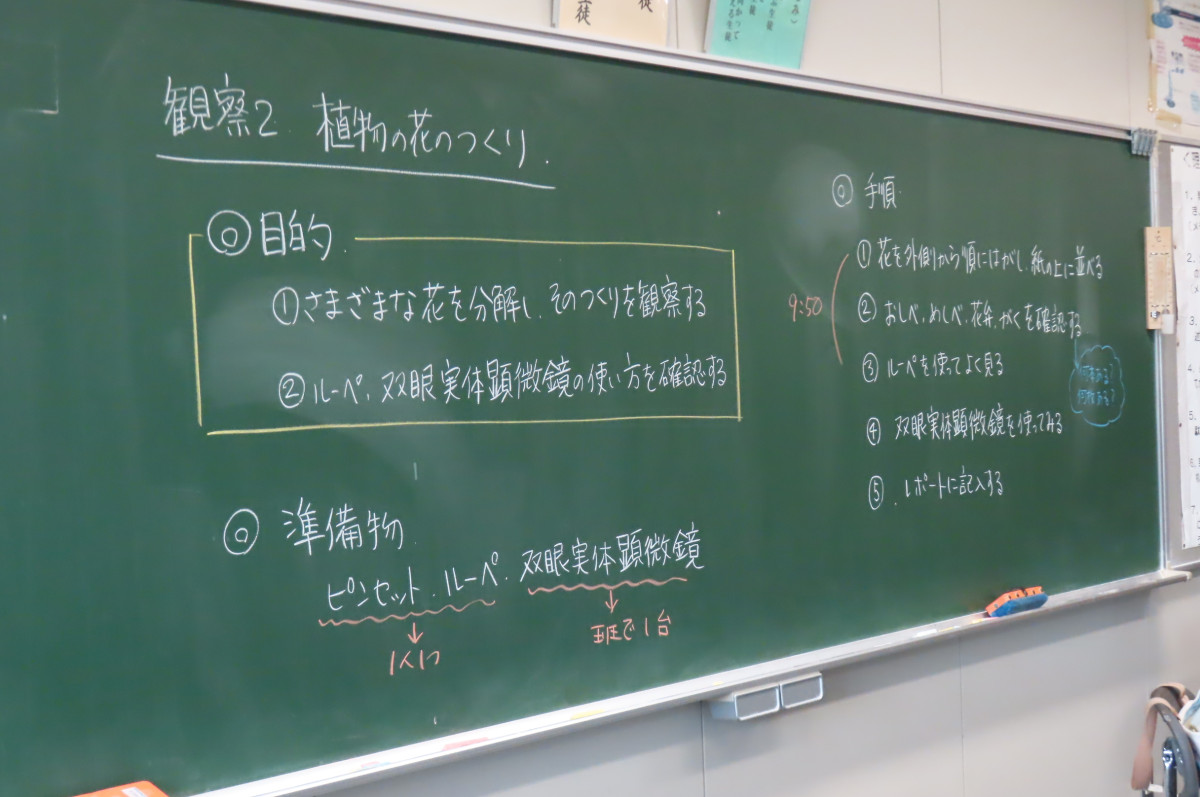 観察2 植物の花のつくり.
◎目的
①さまざまな花を分解し、そのつくりを観察する
②ルーペ、双眼実体顕微鏡の使い方を確認する
◎準備物
ピンセット・ルーペ・双眼実体顕微鏡
↓ ↓
1人1つ 班で1台
◎手順
①花を外側から順にはがし、紙の上に並べる
②おしべ、めしべ、花弁、がくを確認する
9:50
③ルーペを使ってよく見る
何枚ある?
④双眼実体顕微鏡を使ってみる
⑤レポートに記入する